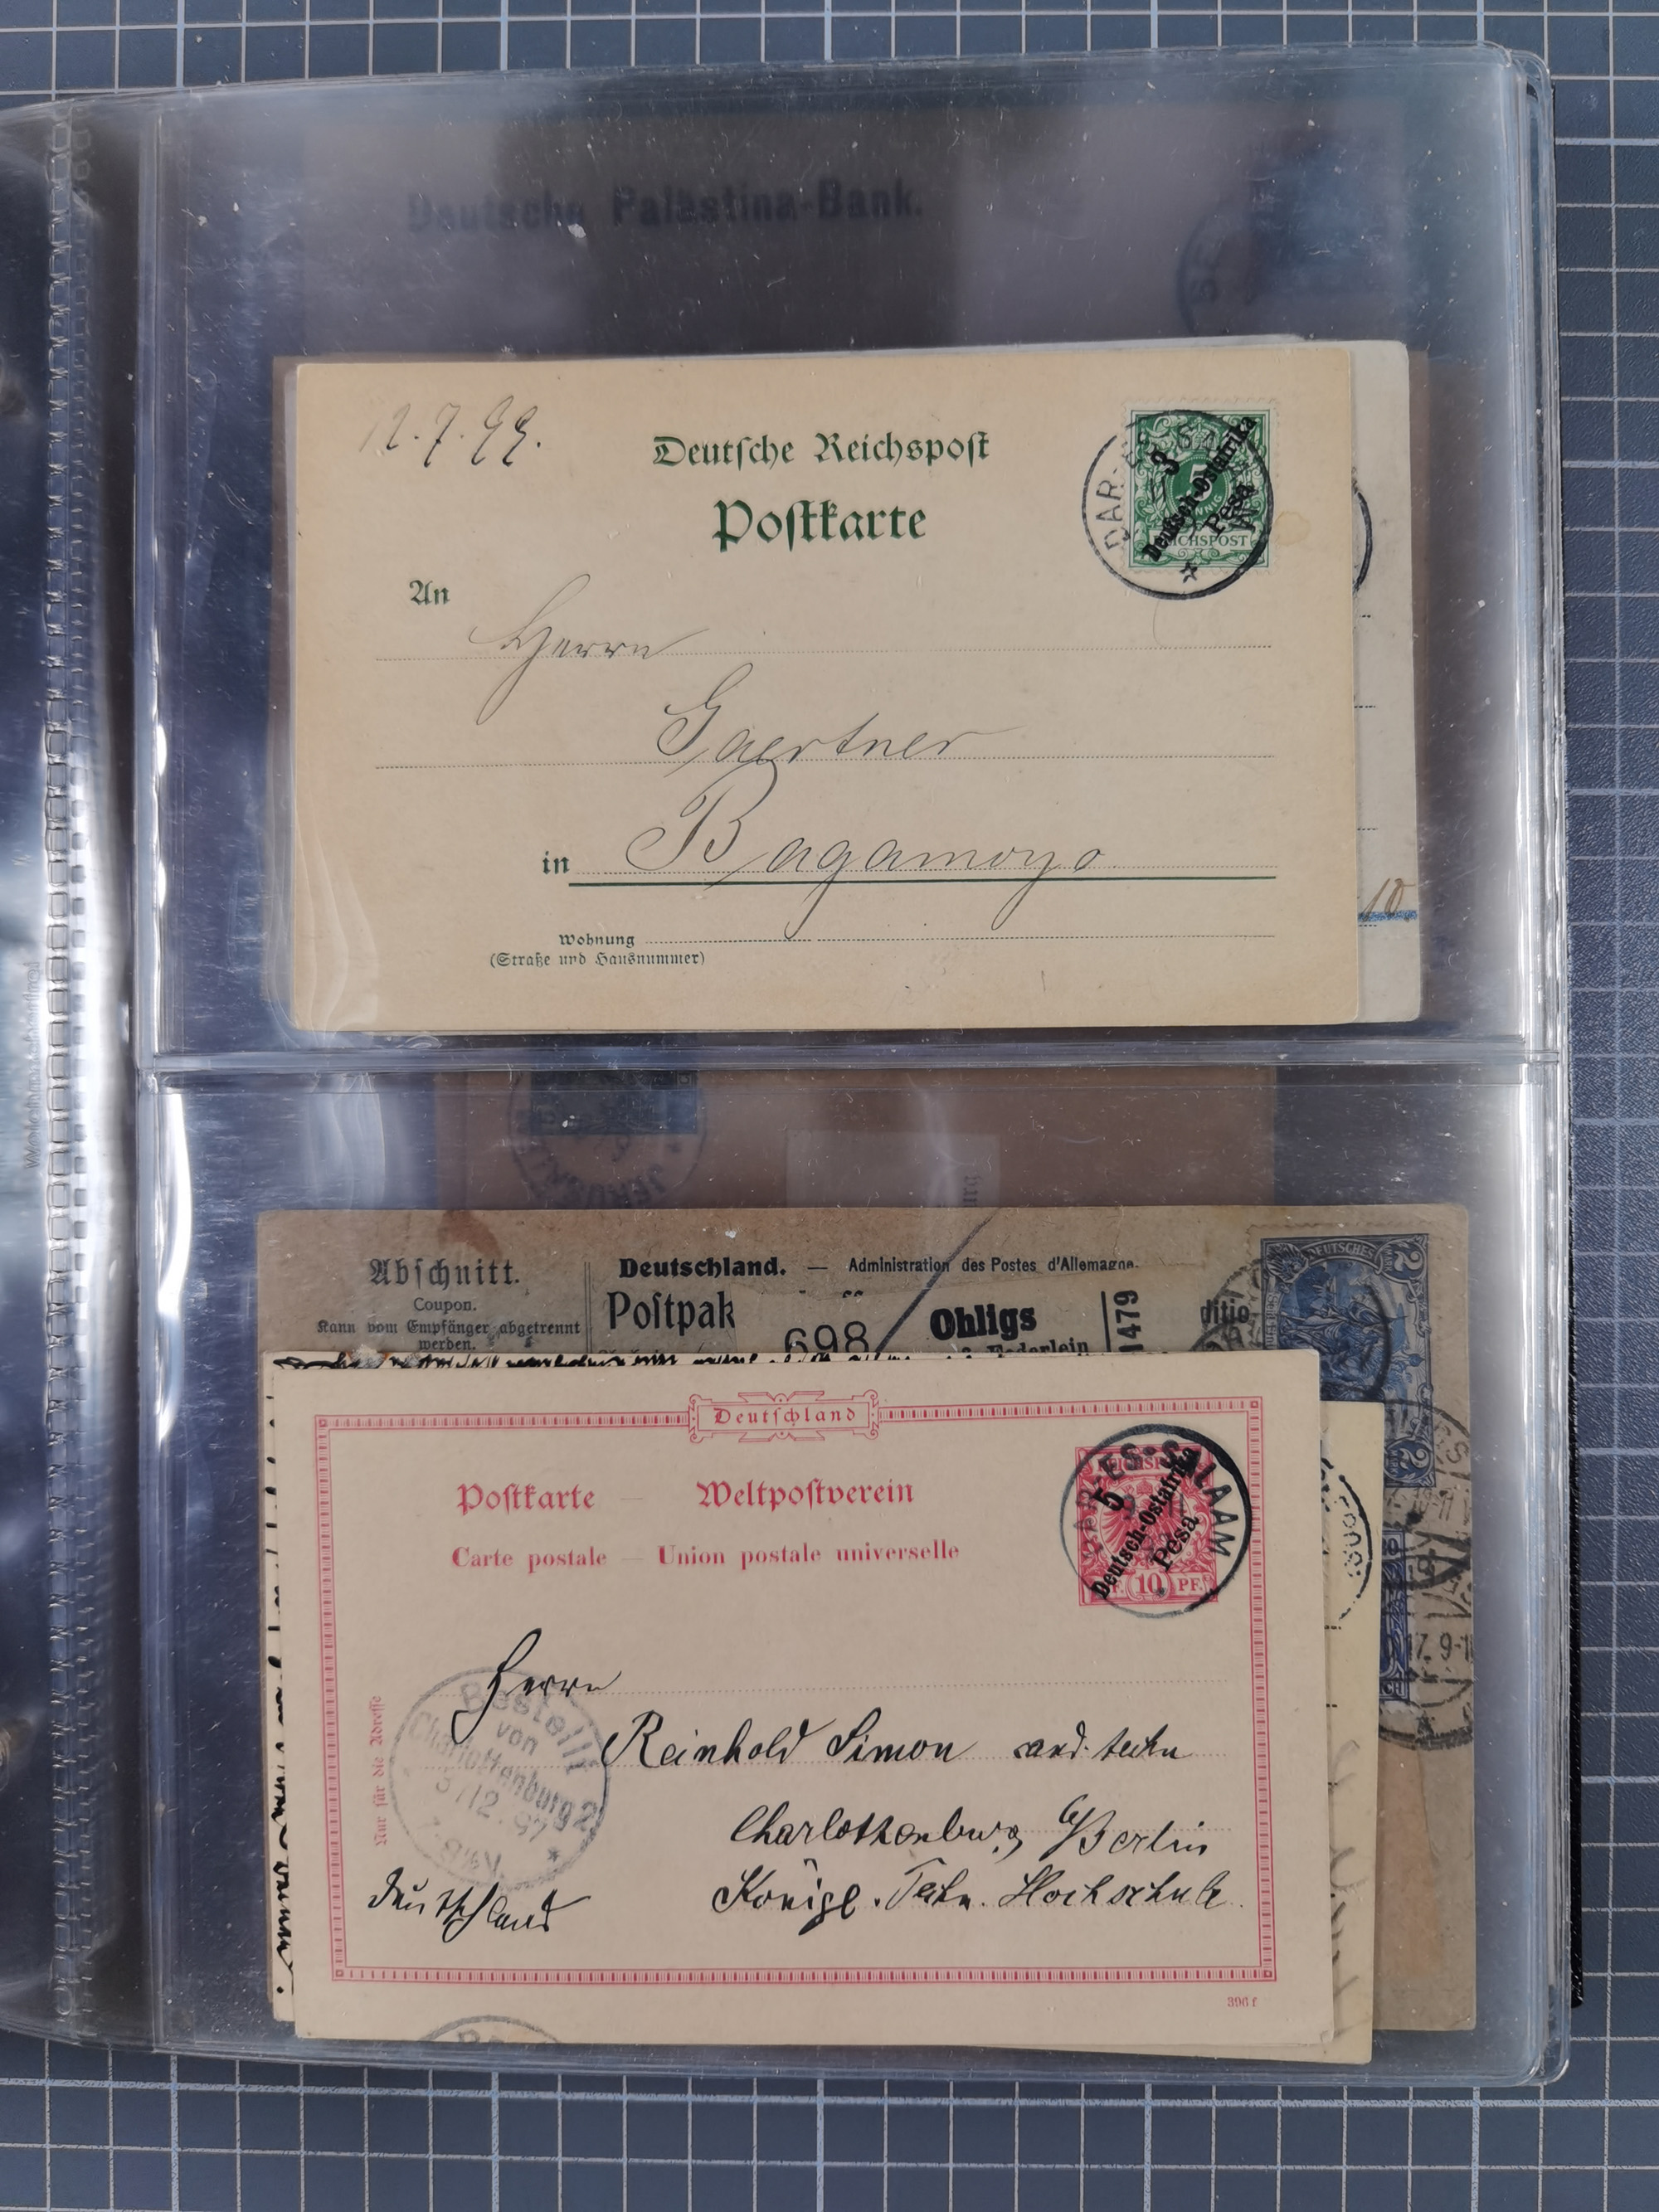 Deutsche Palästina-Bank.
12.7.99.
Deutsche Reichspost
Postkarte
3
5
Deutsch-Ostafrika
Pesa
REICHSPOST
DAR-ES
An
Herrn
Gaertner
in Bagamoyo
10
Wohnung
(Straße und Hausnummer)
Abschnitt.
Coupon.
Kann vom Empfänger abgetrennt
werden.
Deutschland. — Administration des Postes d'Allemagne.
Postpak
698
Ohligs
1479
DEUTSCHES
2
17. 9-1
Deutschland
Postkarte — Weltpostverein
Carte postale — Union postale universelle
DAR-ES-SALAAM
5
Deutsch-Ostafrika
Pesa
10 PF.
Nur für die Adresse
Herrn
Reinhold Simon cand. techn
Charlottenburg b/Berlin
Königl. Techn. Hochschule
Deutschland
Bestellt
von
Charlottenburg 2
5/12.97
396 f